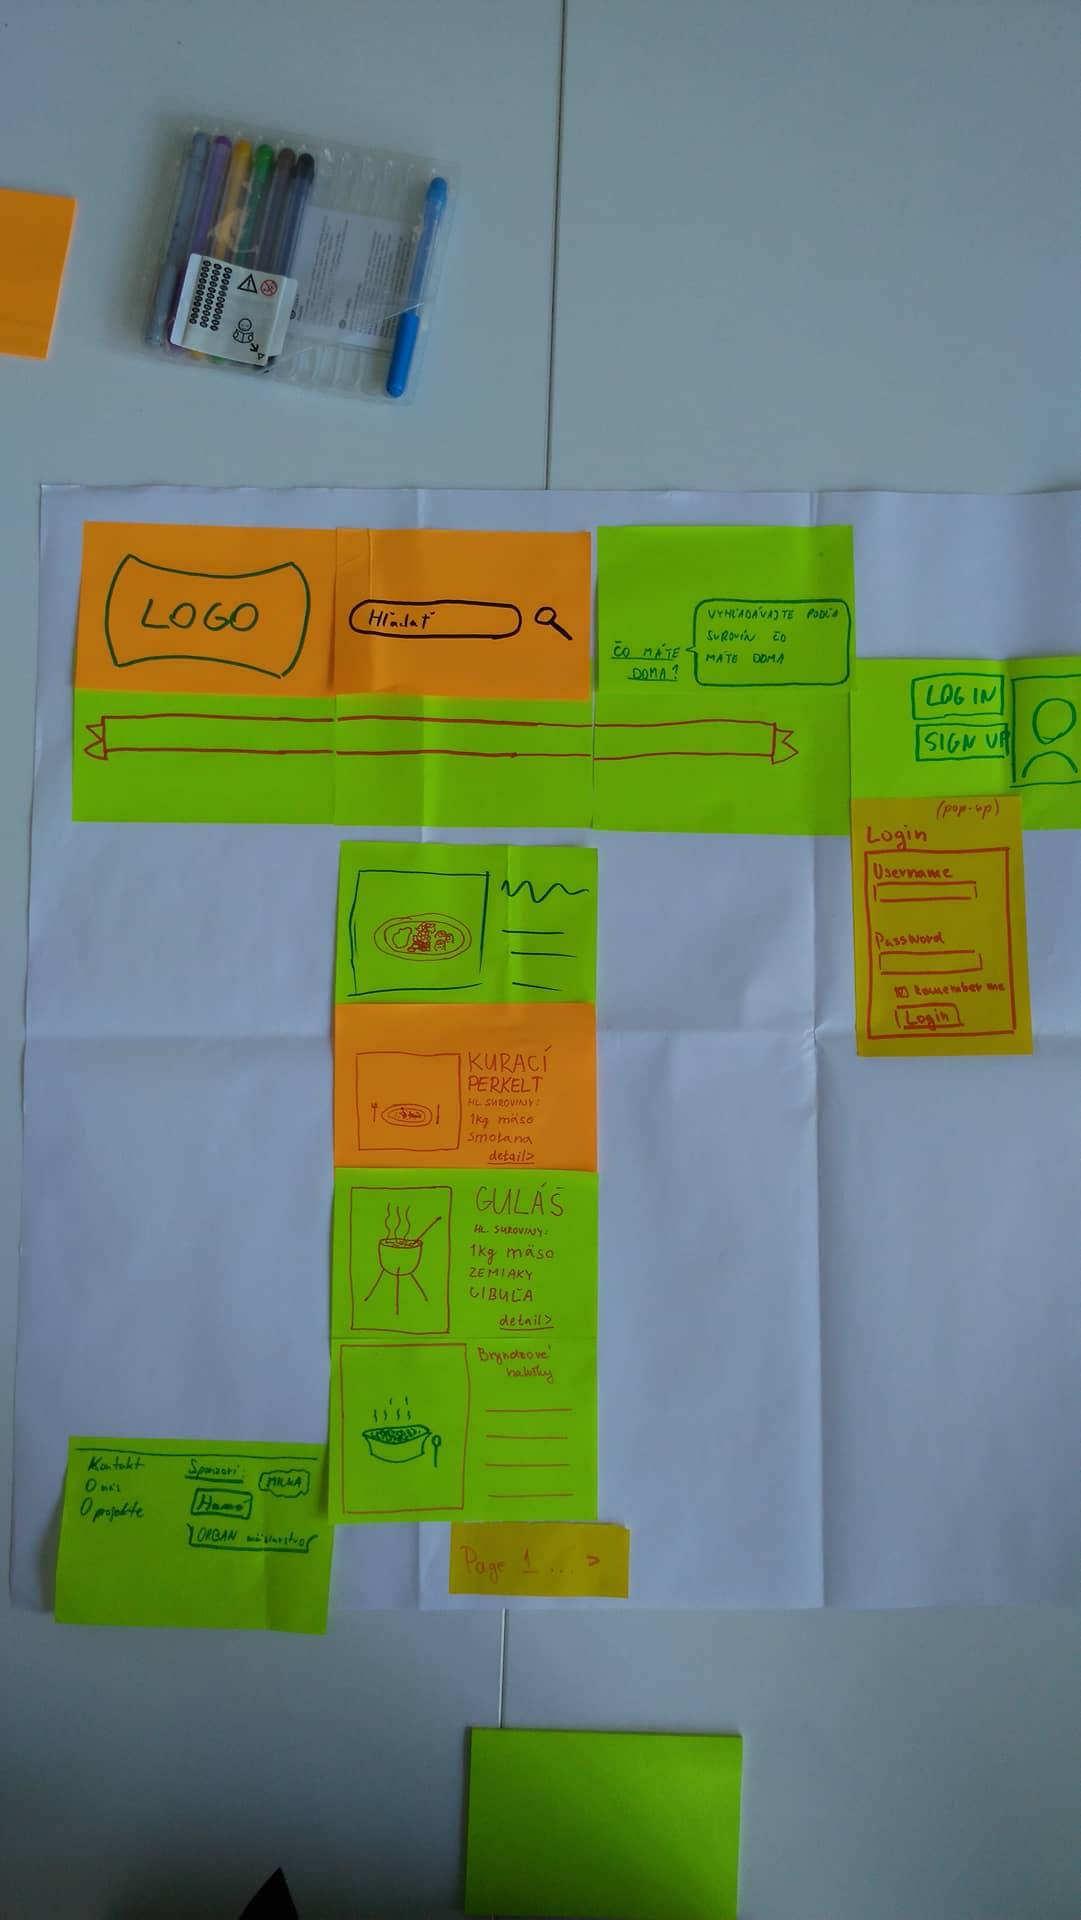 LOGO
Hľadať
ČO MÁTE
DOMA?
VYHĽADÁVAJTE PODĽA
SUROVÍN ČO
MÁTE DOMA
LOG IN
SIGN UP
(pop-up)
Login
Username
Password
Remember me
Login
KURACÍ
PERKELT
HL. SUROVINY:
1kg mäso
smotana
detail>
GULÁŠ
HL. SUROVINY:
1kg mäso
ZEMIAKY
CIBUĽA
detail>
Bryndzové
halušky
Kontakt
O nás
O projekte
Sponzori:
MILKA
Hamé
ORBAN mäsiarstvo
Page 1 ... >